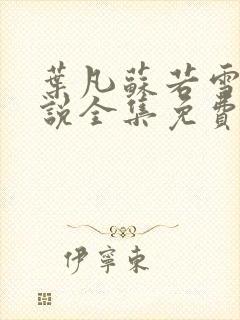 葉凡蘇若雪
說全集免費
伊寧東